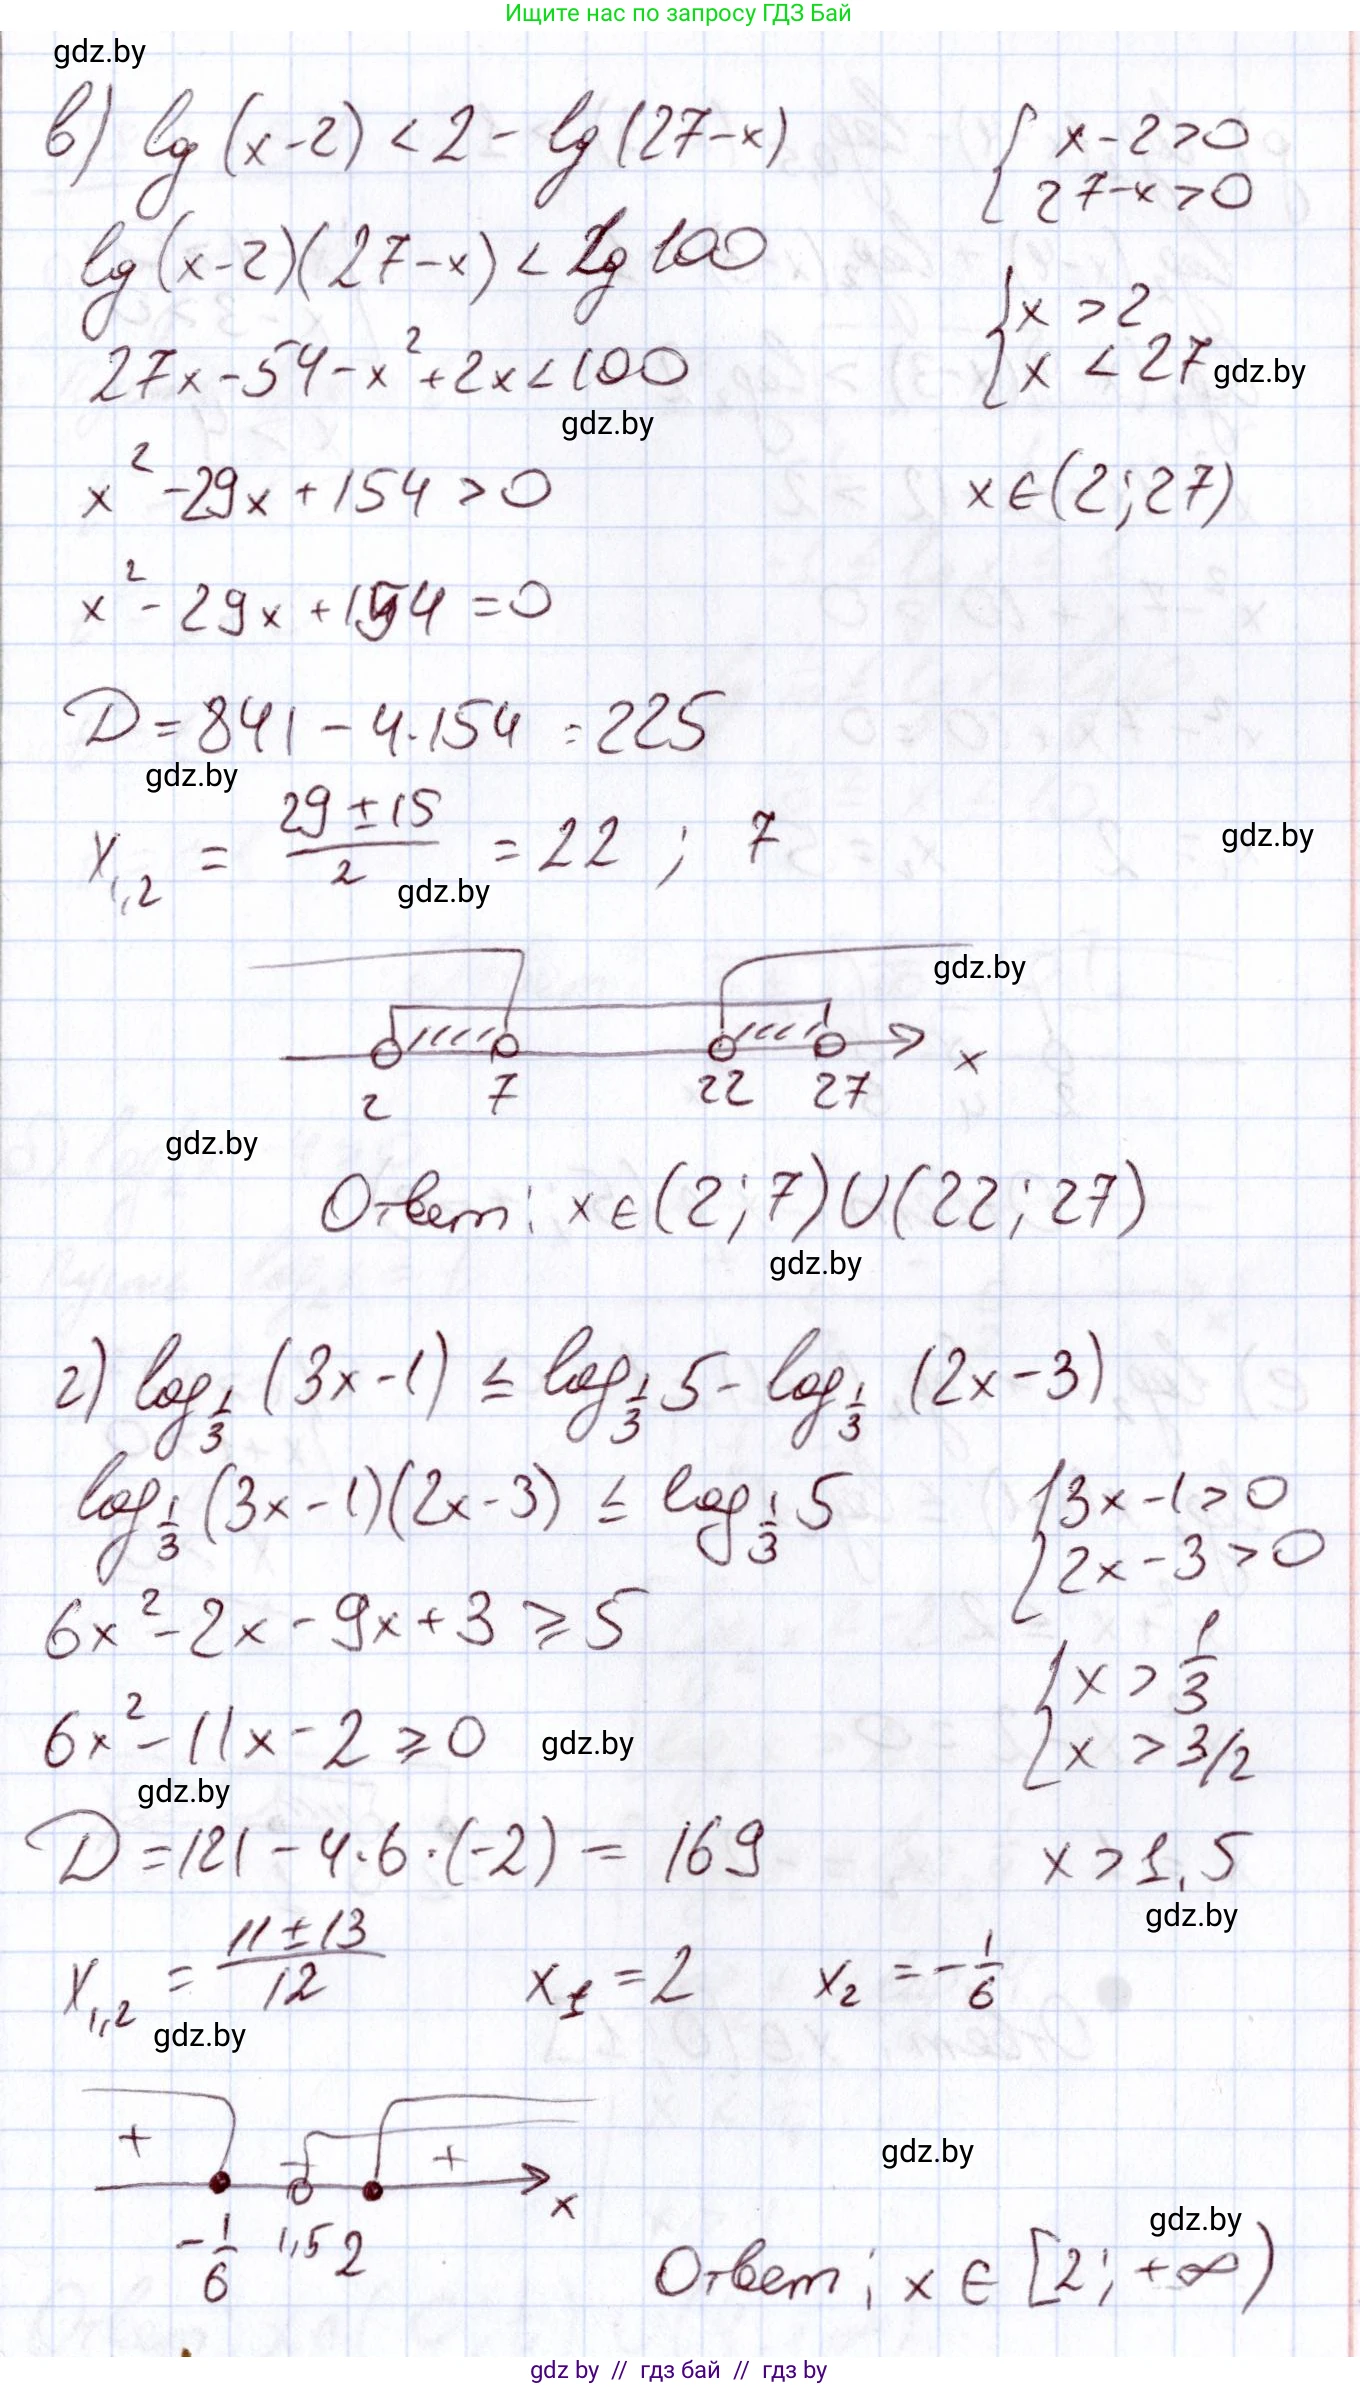 Ищите нас по запросу ГДЗ Бай
gdz.by
в) lg(x-2) < 2 - lg(27-x)
{ x-2>0
27-x>0
lg(x-2)(27-x) < lg 100
{ x > 2
x < 27
gdz.by
27x-54-x²+2x<100
gdz.by
x²-29x+154>0
x∈(2;27)
x²-29x+154=0
D=841-4·154=225
gdz.by
x₁,₂ = (29±15)/2 = 22 ; 7
gdz.by
gdz.by
gdz.by
x
2 7 22 27
gdz.by
Ответ: x∈(2;7)∪(22;27)
gdz.by
г) log_{1/3}(3x-1) ≤ log_{1/3}5 - log_{1/3}(2x-3)
log_{1/3}(3x-1)(2x-3) ≤ log_{1/3}5
{ 3x-1>0
2x-3>0
6x²-2x-9x+3 ≥ 5
{ x > 1/3
x > 3/2
6x²-11x-2 ≥ 0
gdz.by
gdz.by
D=121-4·6·(-2) = 169
x>1,5
gdz.by
x₁,₂ = (11±13)/12 x₁=2 x₂=-1/6
gdz.by
+ - +
gdz.by
x
-1/6 1,5 2
gdz.by
Ответ: x∈[2;+∞)
gdz by // гдз бай // гдз by